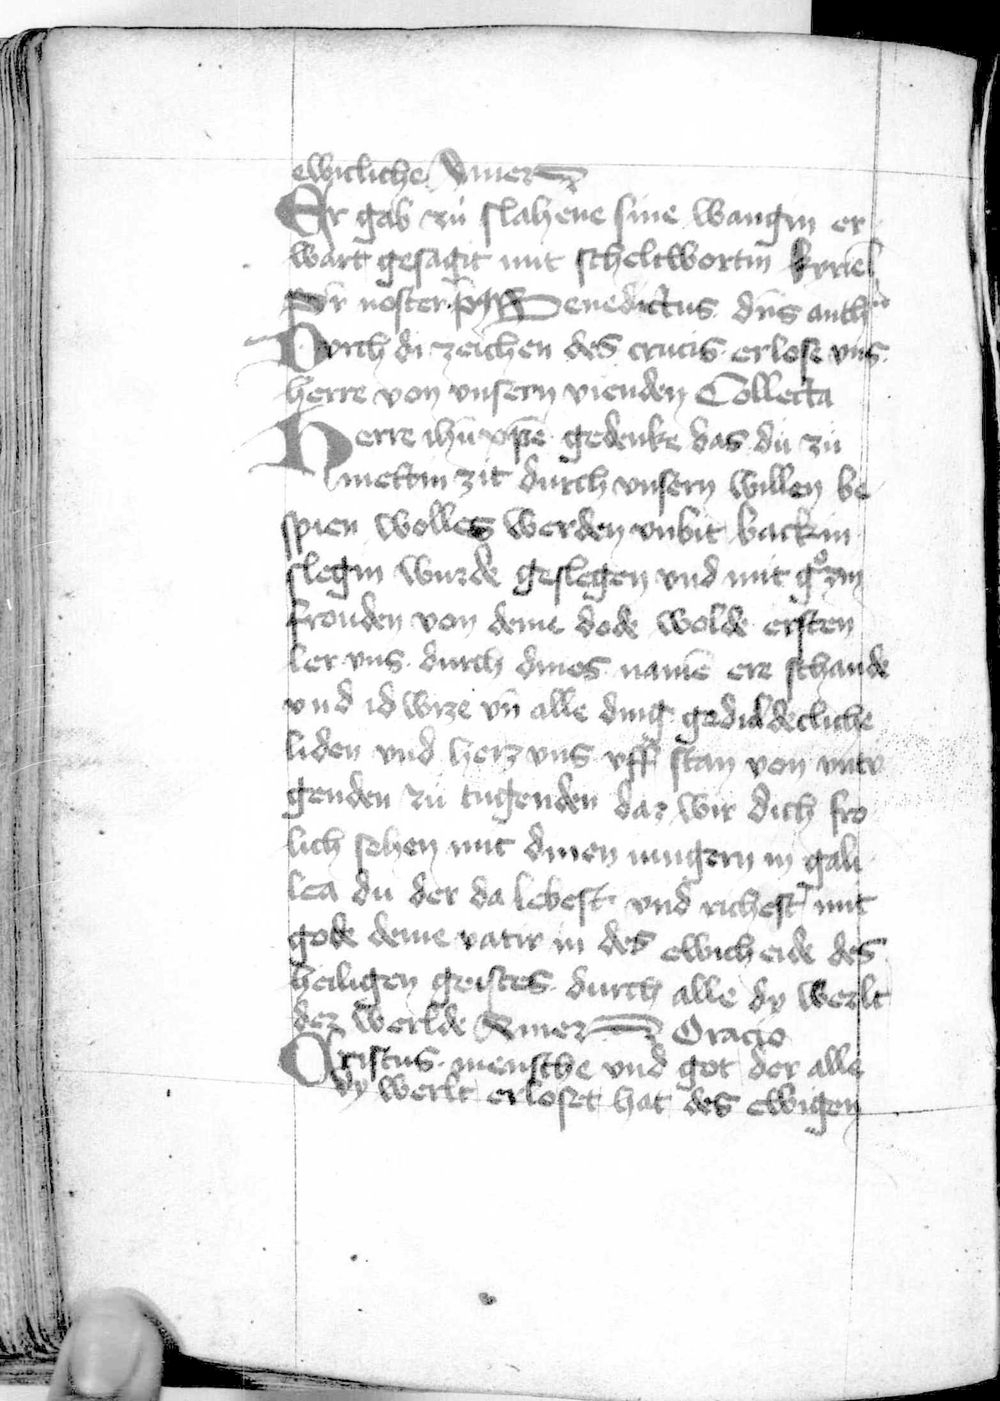 ewicliche Amen
Er gab zu slahene sine wangin er
wart gesagit mit scheltwortin kyriel
Pr noster Benedictus dn̄s anth
Durch di zeichen des crucis erlose vns
herre von vnsern vienden Collecta
Herre ihū xp̄e gedenke das du zu
mettin zit durch vnsern willen be
spien wolles werden vnbit backin
slegin wurde geslegen vnd mit
frouden von deme dode wolde ersten
ler vns durch dines namē ere schande
vnd id wize vn̄ alle ding gedialdecliche
liden vnd herz vns vff stan von vntv
genden zu tugenden daz wir dich fro
lich sehen mit dinen iungern in gali
lea du der da lebest vnd richest mit
gode deme vatir in des ewicheide des
heiligen geistes durch alle dy werlt
dez werlde Amen Oracio
Cristus mensche vnd got der alle
dy werlt erloset hat des ewigen